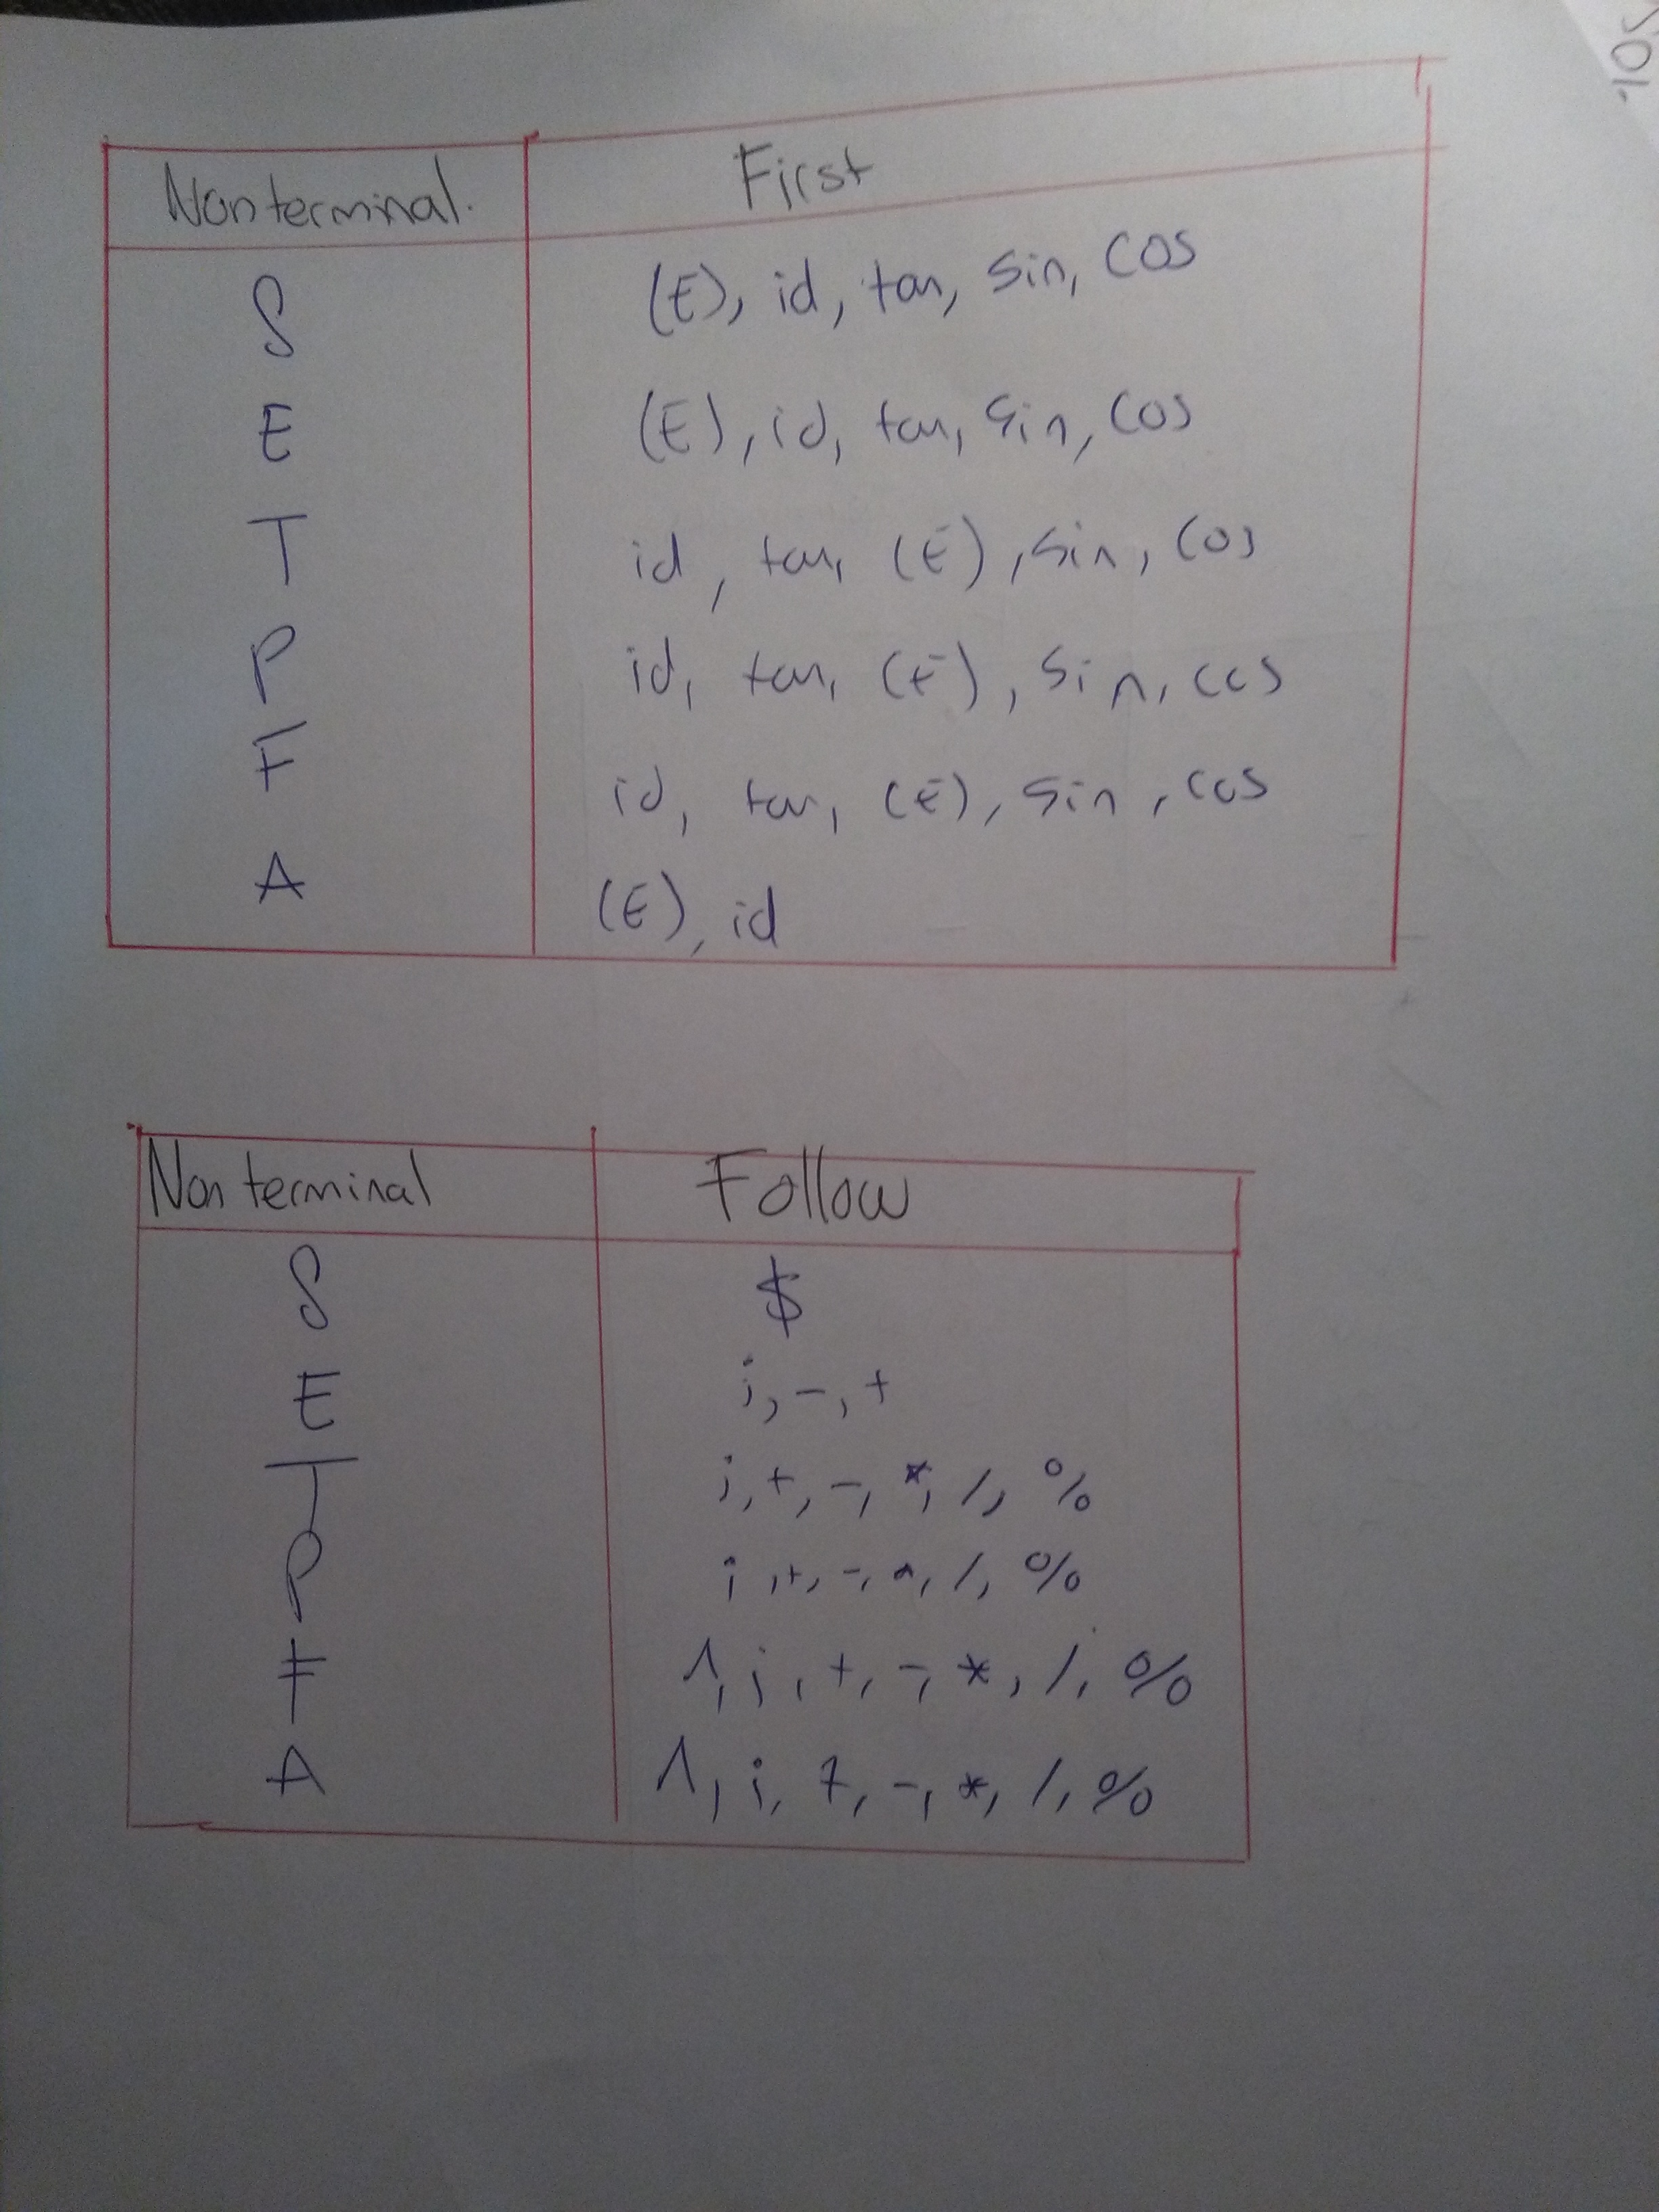 Nonterminal. First
S (E), id, tan, sin, cos
E (E), id, tan, sin, cos
T id, tan, (E), sin, cos
P id, tan, (E), sin, cos
F id, tan, (E), sin, cos
A (E), id
Non terminal Follow
S $
E ;, -, +
T ;, +, -, *, /, %
P ;, +, -, *, /, %
F ^, ;, +, -, *, /, %
A ^, ;, +, -, *, /, %